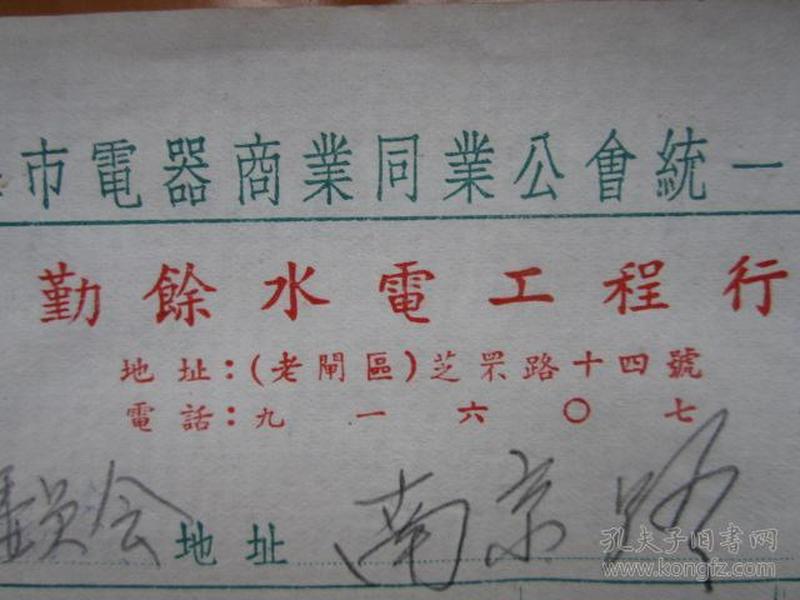 市電器商業同業公會統一
勤餘水電工程行
地址：(老閘區)芝罘路十四號
電話：九一六〇七
員会 地址 南京路
孔夫子旧书网
www.kongfz.com